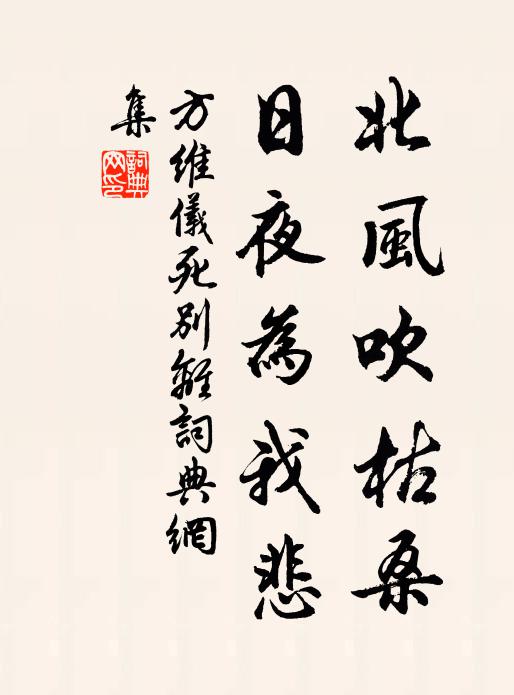 北風吹枯桑
日夜為我悲
方維儀死別離詞典網
集
詞典
網印